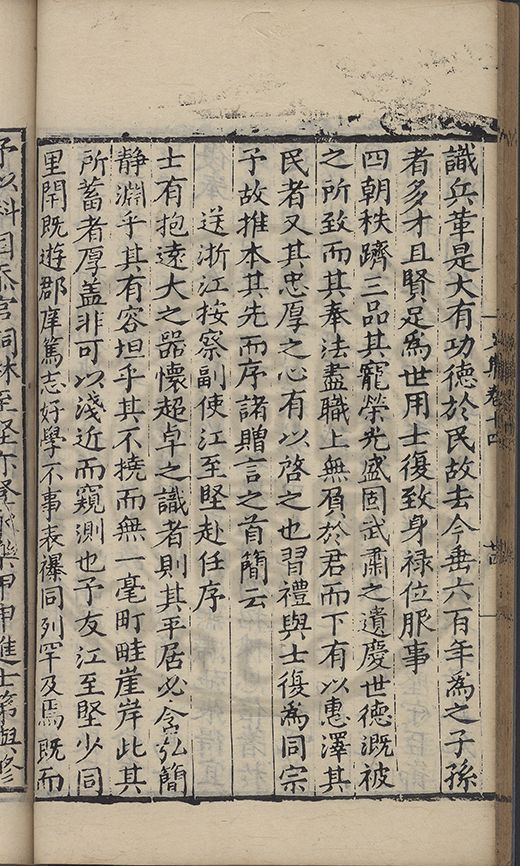 識兵革是大有功德於民故去今垂六百年為之子孫
者多才且賢足為世用士復致身禄位服事
四朝秩躋三品其寵榮光盛固武肅之遺慶世德溉被
之所致而其奉法盡職上無負於君而下有以惠澤其
民者又其忠厚之心有以啓之也習禮與士復為同宗
子故推本其先而序諸贈言之首簡云
送浙江按察副使江至堅赴任序
士有抱遠大之器懷超卓之識者則其平居必含弘簡
静淵乎其有容坦乎其不撓而無一毫町畦崖岸此其
所蓄者厚盖非可以淺近而窺測也予友江至堅少同
里閈既遊郡庠篤志好學不事表襮同列罕及焉既而
文集卷十四
予以科目忝官詞林至堅亦登永樂甲申進士第與修